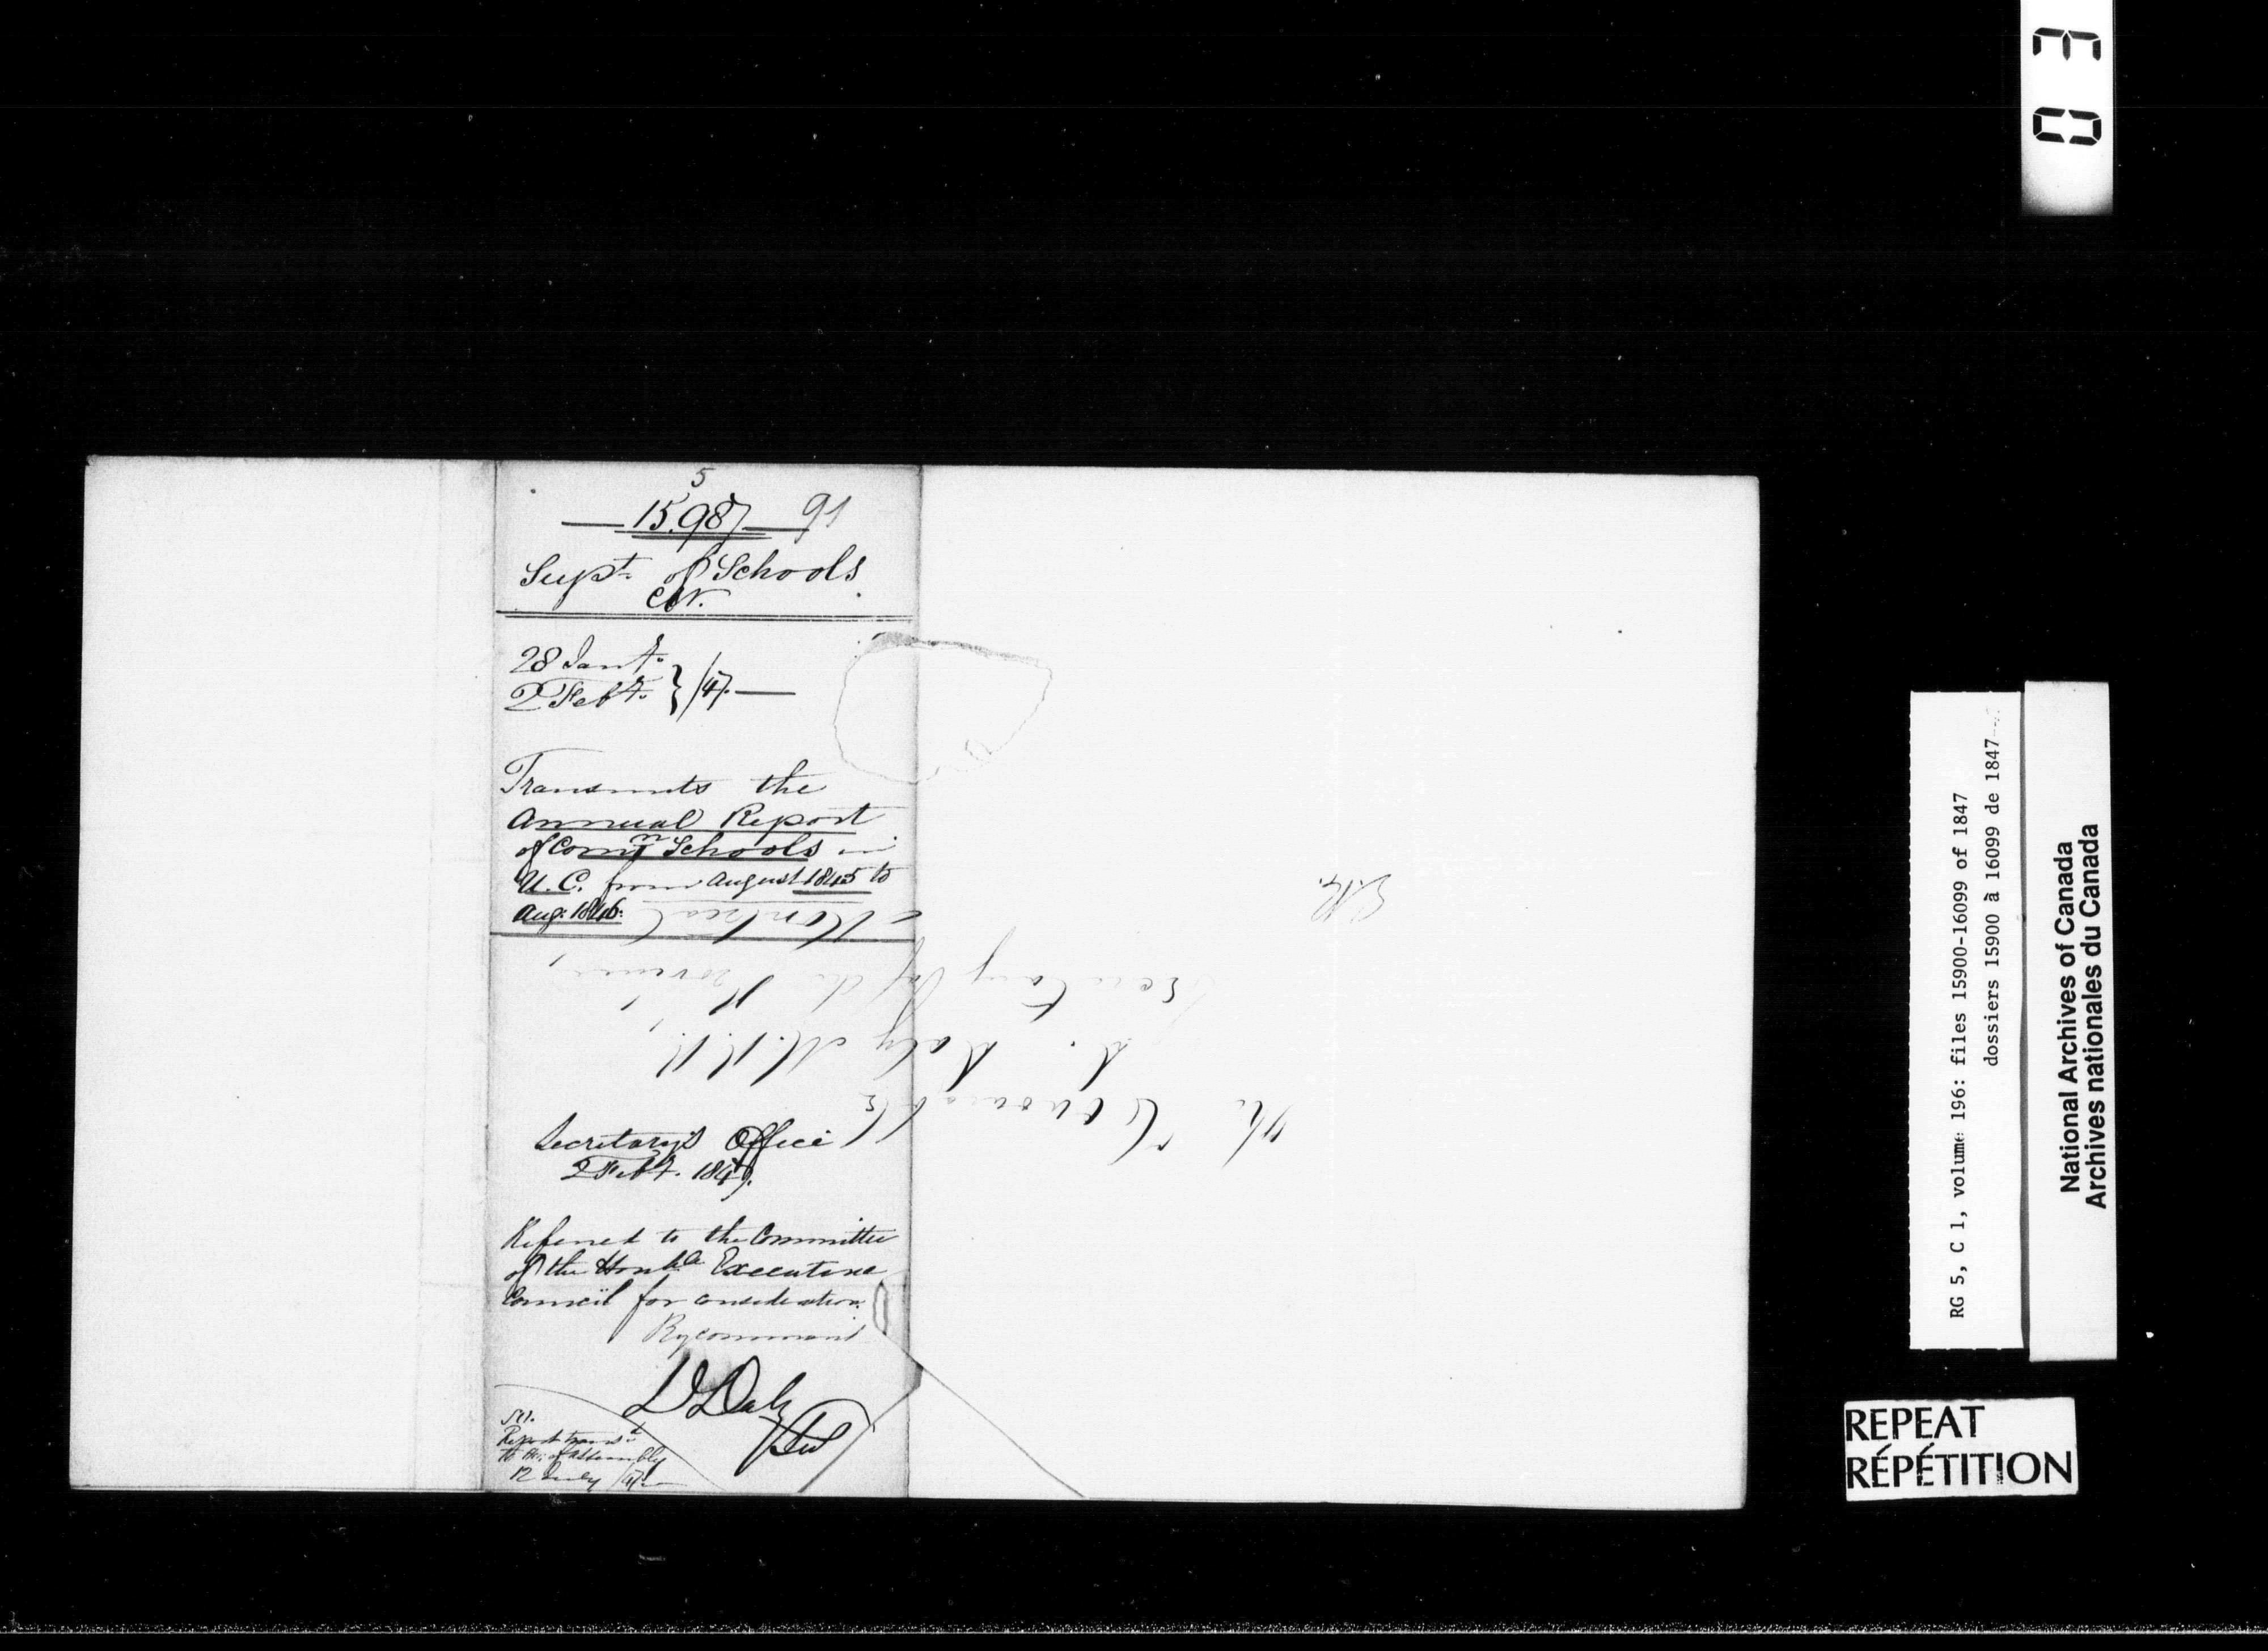 5
15.987 91
Supt. of Schools
C.W.
28 Jany.
2 Feby. } /47.
Transmits the
Annual Report
of Comn Schools in
U.C. from August 1845 to
Aug: 1846.
Secretary's Office
2 Feby. 1847.
Referred to the Committee
of the Honble Executive
Council for consideration.
By command
D Daly
Sec
Report transd
to Ho: of Assembly
12 July /47
The Honourable
D. Daly M.P.P.,
Secretary of the Province,
Montreal
E.R.
03
RG 5, C 1, volume 196: files 15900-16099 of 1847
dossiers 15900 à 16099 de 1847
National Archives of Canada
Archives nationales du Canada
REPEAT
RÉPÉTITION